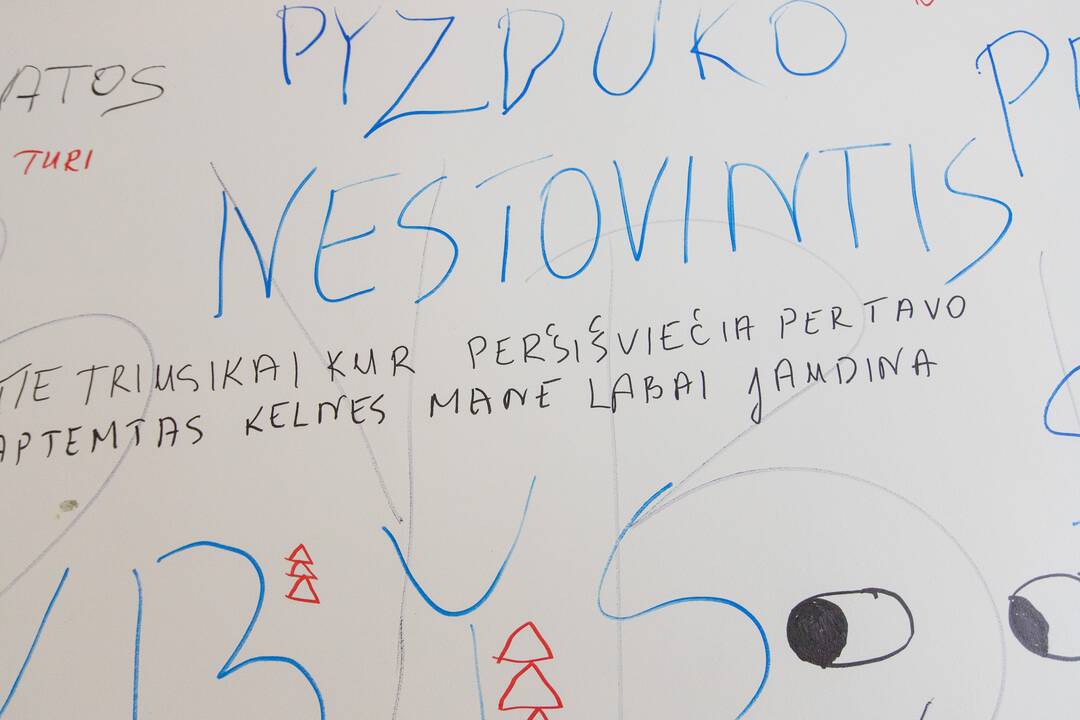 PYZDUKO
ATOS
TURI
NESTOVINTIS
TIE TRIUSIKAI KUR PERŠIŠVIEČIA PER TAVO
APTEMTAS KELNES MANE LABAI JAUDINA